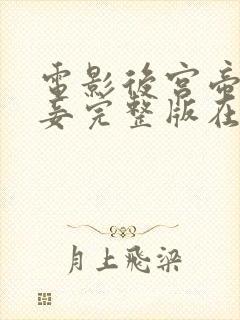 電影後宮帝
妾完整版在
月上飛梁